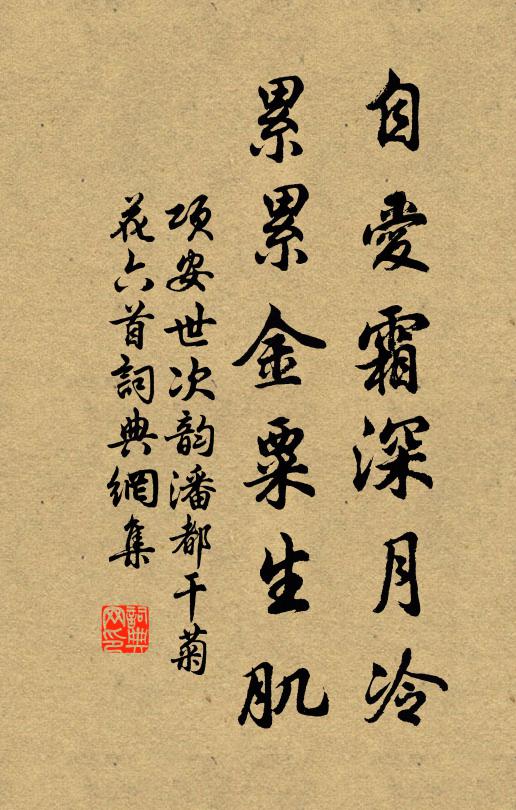 自愛霜深月冷
累累金粟生肌
项安世次韵潘都干菊
花六首詞典網集
詞典
网印